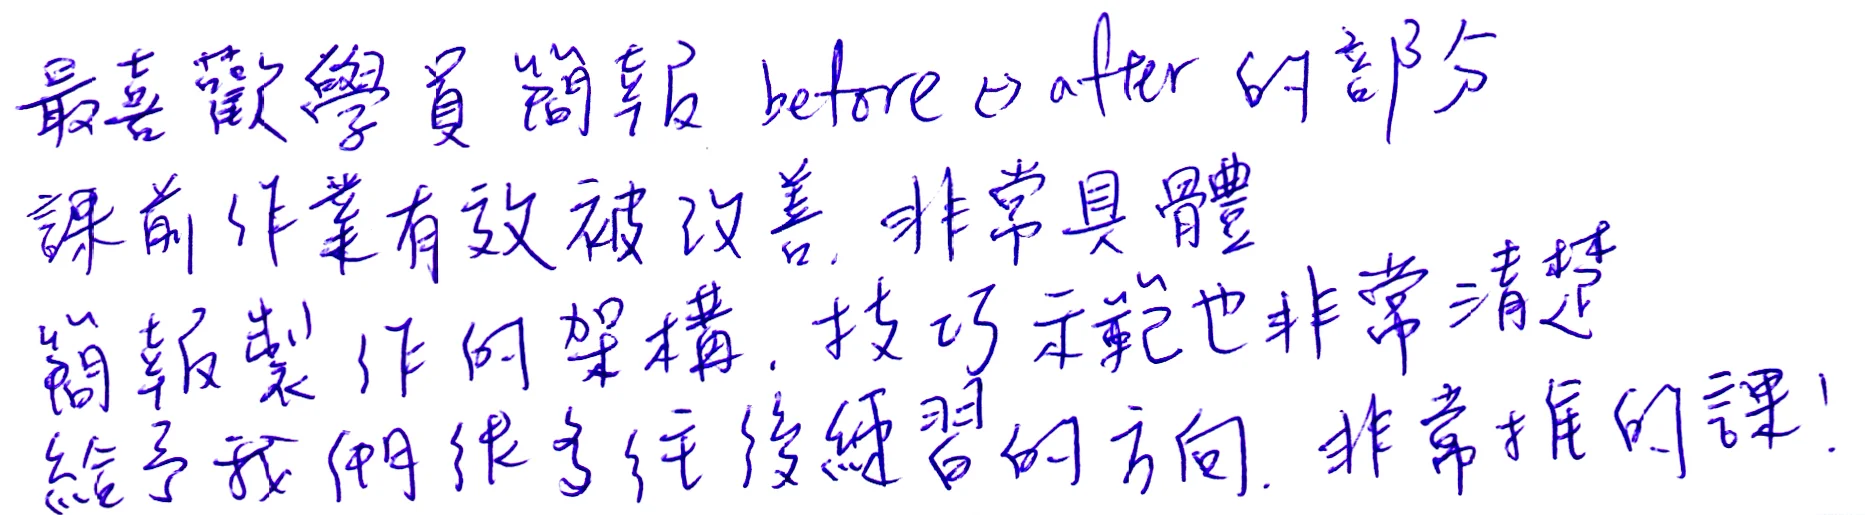 最喜歡學員簡報 before ↔ after 的部分
課前作業有效被改善, 非常具體
簡報製作的架構, 技巧示範也非常清楚
給予我們很多往後練習的方向. 非常推的課!